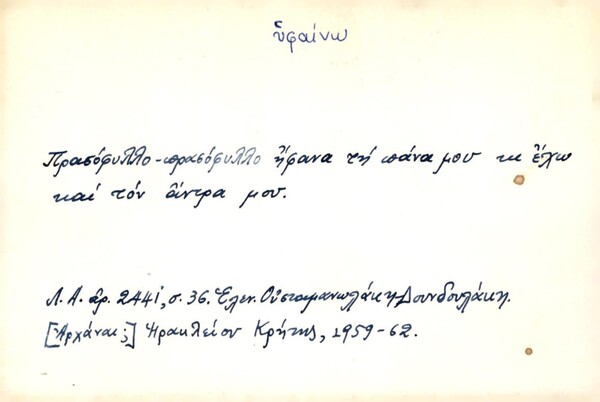 ὑφαίνω
Πρασόφυλλο-πρασόφυλλο ἤφανα τή πάνα μου κ ἔχω
καί τόν ἄντρα μου.
Λ.Α. ἀρ. 2441, σ. 36. Ἑλεν. Οὐσταμανωλάκη-Δουνδουλάκη.
[Ἀρχάναι;] Ἡρακλείου Κρήτης, 1959-62.